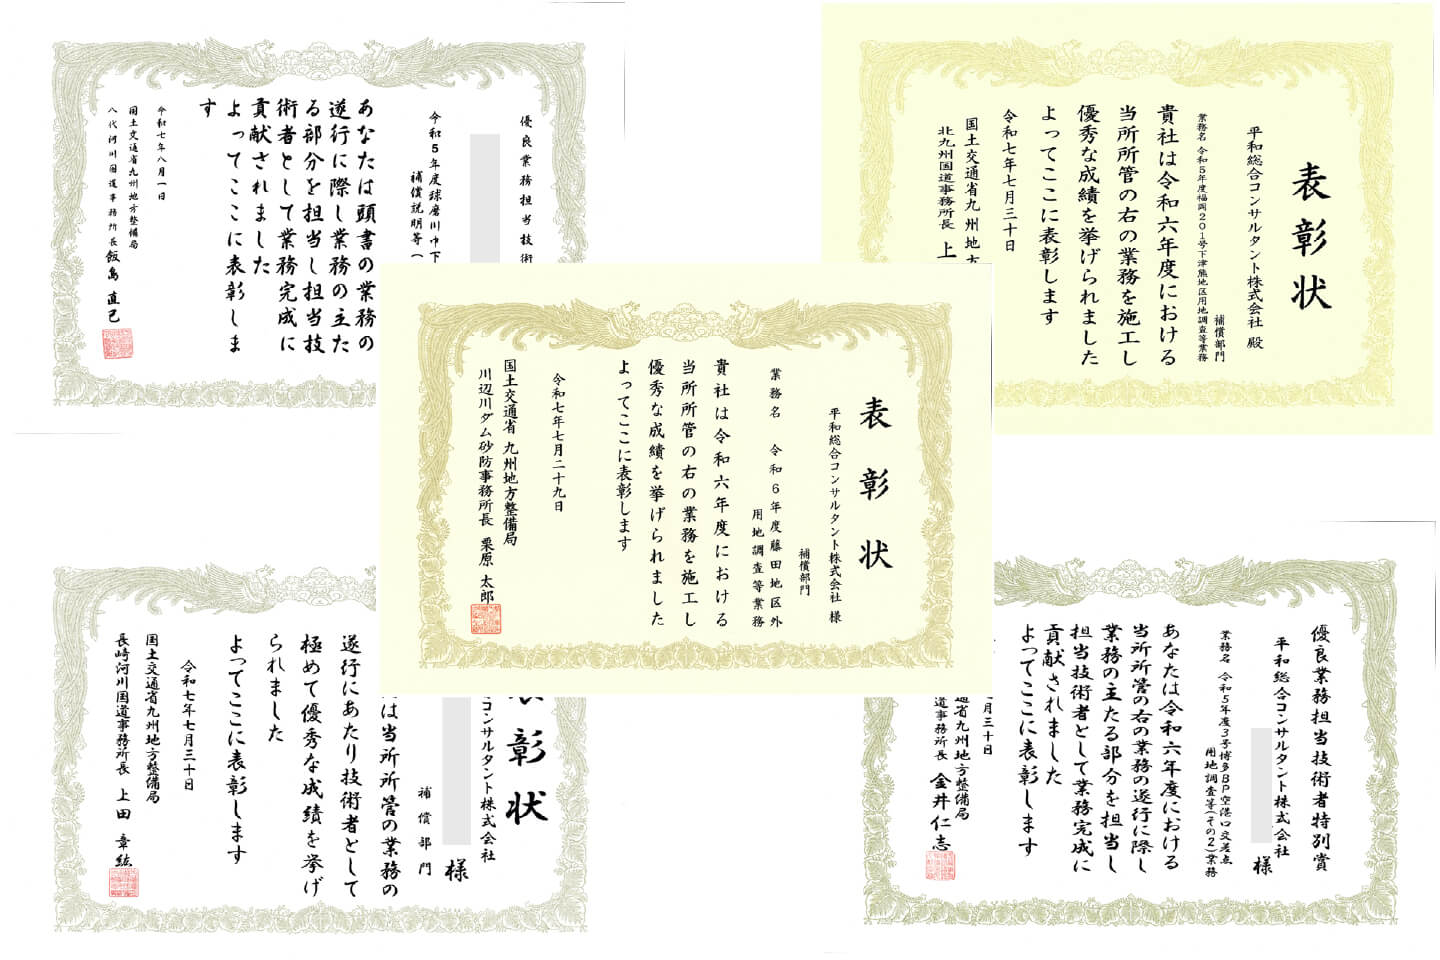 優良業務担当技術
令和5年度球磨川中下
補償説明等(
あなたは頭書の業務の
遂行に際し業務の主た
る部分を担当し担当技
術者として業務完成に
貢献されました
よってここに表彰しま
す
令和七年八月一日
国土交通省九州地方整備局
八代河川国道事務所長 飯島 直己
表彰状
平和総合コンサルタント株式会社 殿
補償部門
業務名 令和5年度福岡201号下津熊地区用地調査等業務
貴社は令和六年度における
当所所管の右の業務を施工し
優秀な成績を挙げられました
よってここに表彰します
令和七年七月三十日
国土交通省九州地方
北九州国道事務所長 上
表彰状
平和総合コンサルタント株式会社 様
補償部門
業務名 令和6年度藤田地区外
用地調査等業務
貴社は令和六年度における
当所所管の右の業務を施工し
優秀な成績を挙げられました
よってここに表彰します
令和七年七月二十九日
国土交通省 九州地方整備局
川辺川ダム砂防事務所長 栗原 太郎
表彰状
コンサルタント株式会社
様
補償部門
は当所所管の業務の
遂行にあたり技術者として
極めて優秀な成績を挙げ
られました
よってここに表彰します
令和七年七月三十日
国土交通省九州地方整備局
長崎河川国道事務所長 上田 章紘
優良業務担当技術者特別賞
平和総合コンサルタント株式会社
様
業務名 令和5年度3号博多BP空港口交差点
用地調査等(その2)業務
あなたは令和六年度における
当所所管の右の業務の遂行に際し
業務の主たる部分を担当し
担当技術者として業務完成に
貢献されました
よってここに表彰します
月三十日
通省九州地方整備局
道事務所長 金井仁志